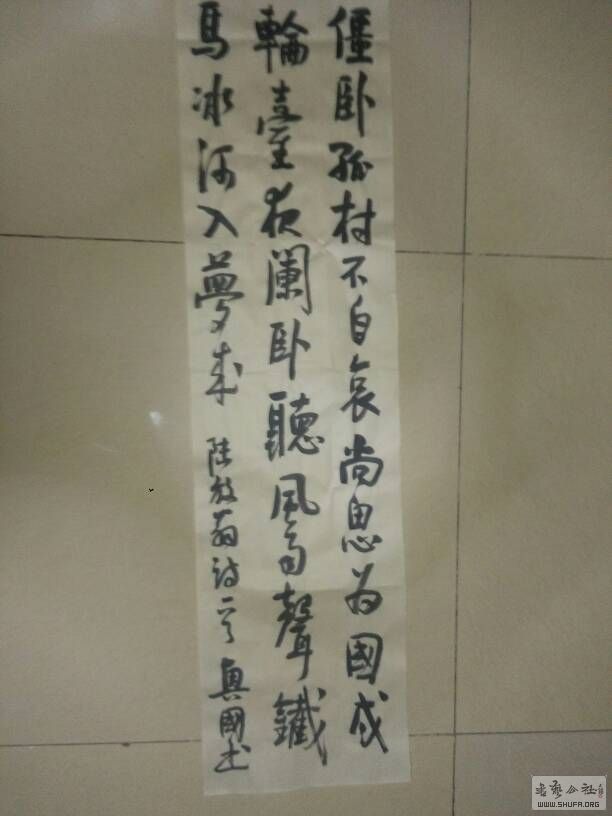 僵卧孤村不自哀尚思为國戍
輪臺夜闌卧聽風雨聲鐵
馬冰河入夢来 陸放翁诗一首 國书
书艺公社
WWW.SHUFA.ORG